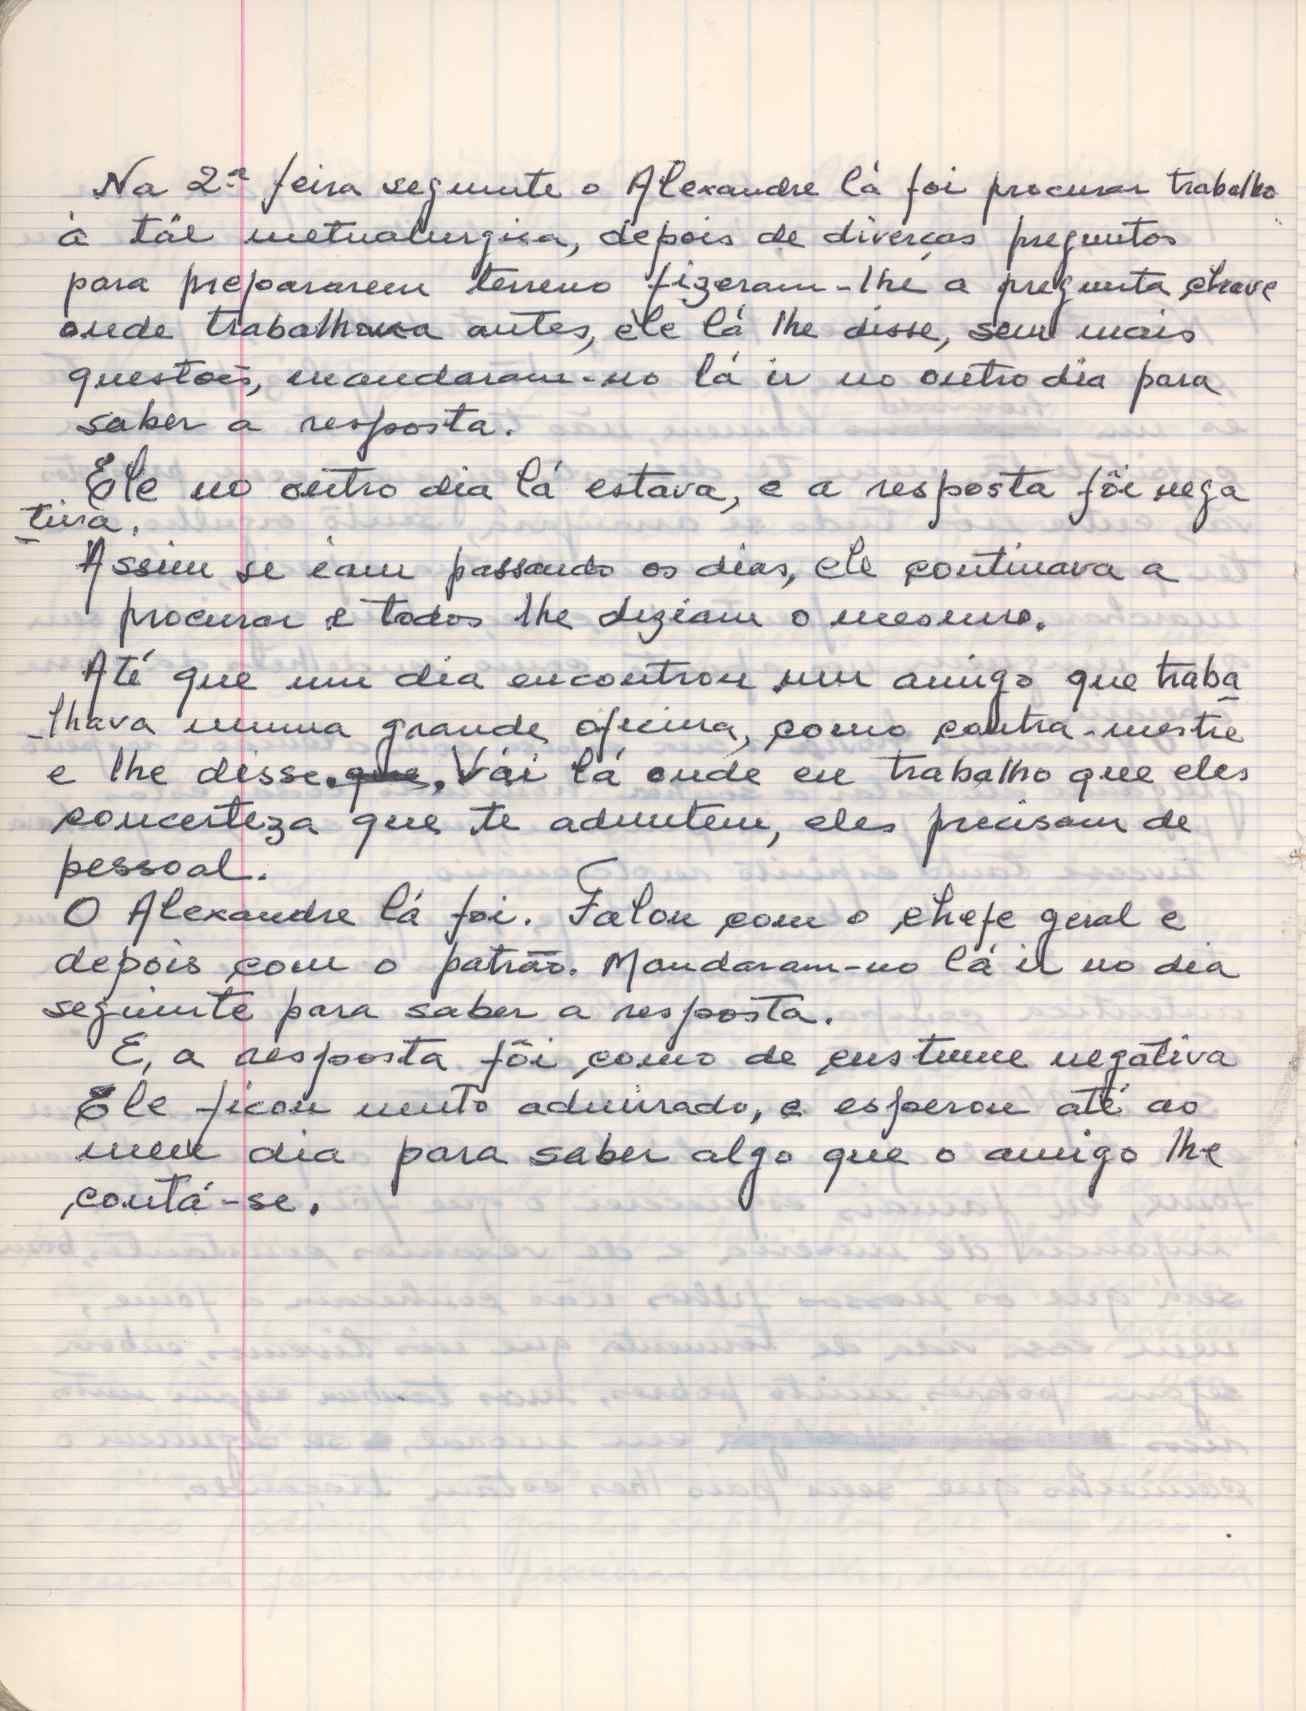 Na 2ª feira seguinte o Alexandre lá foi procurar trabalho
á tál metualurgica, depois de diverças preguntas
para prepararem terreno fizeram-lhe a pregunta chave
onde trabalhava antes, ele lá lhe disse, sem mais
questoes, mandaram-no lá ir no outro dia para
saber a resposta.
Ele no outro dia lá estava, e a resposta fôi nega
tiva.
Assim se iam passando os dias, ele continava a
procurar e todos lhe diziam o mesmo.
Até que um dia encontrou um amigo que traba
-lhava numa grande oficina, como contra-mestre
e lhe disse. que. Vái lá onde eu trabalho que eles
concerteza que te admitem, eles precisam de
pessoal.
O Alexandre lá foi. Falou com o chefe geral e
depois com o patrão. Mandaram-no lá ir no dia
seguinte para saber a resposta.
E, a resposta fôi como de custume negativa
Ele ficou muto admirado, e esperou até ao
meu dia para saber algo que o amigo lhe
contá-se.